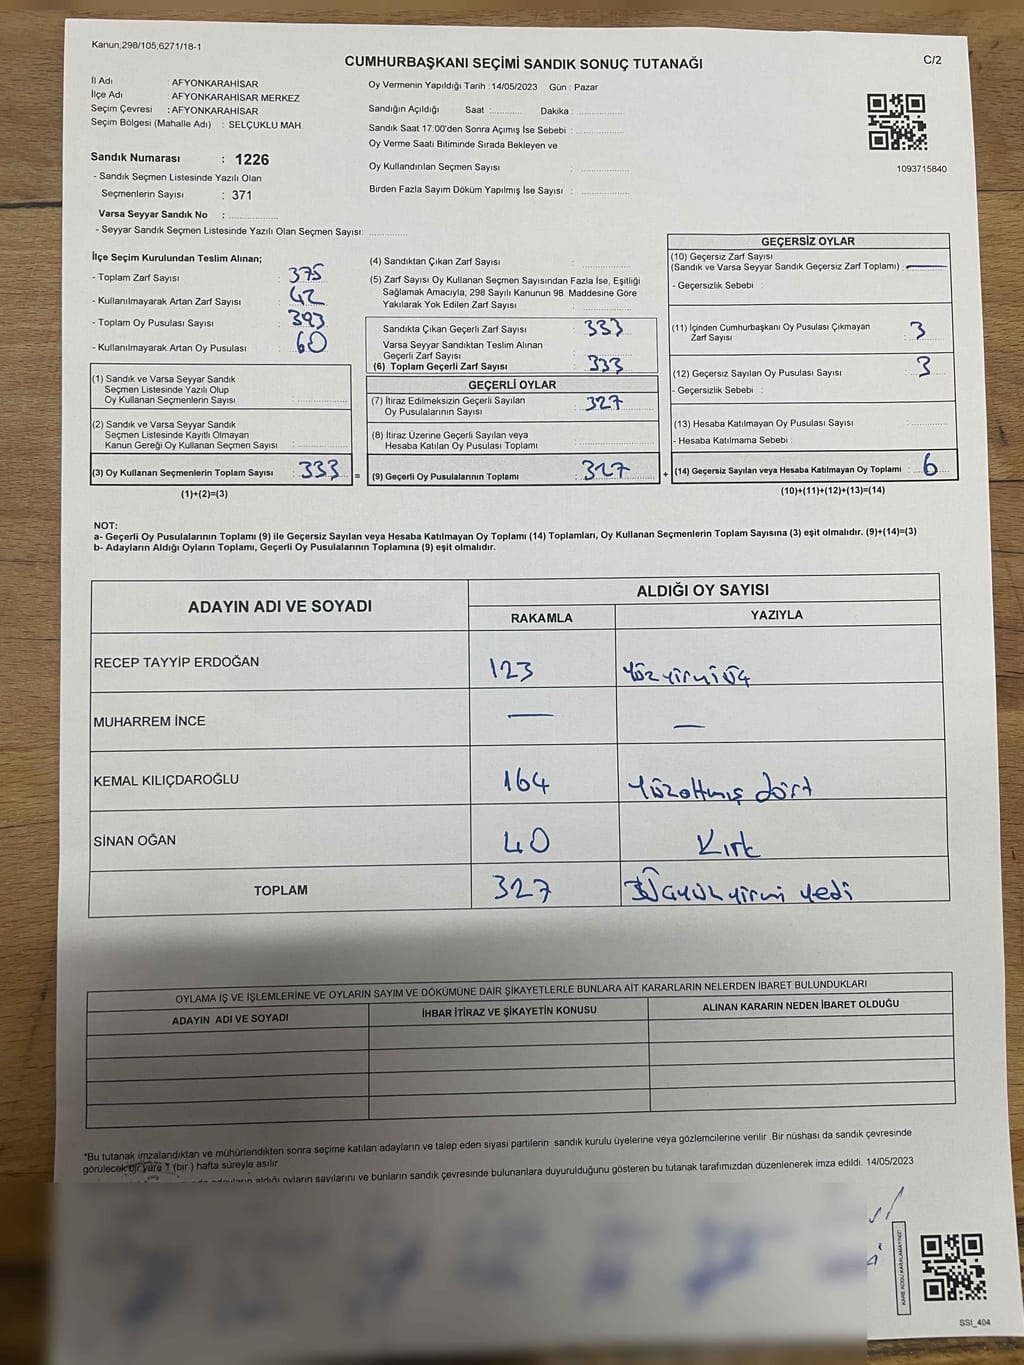 Kanun;298/105,6271/18-1
CUMHURBAŞKANI SEÇİMİ SANDIK SONUÇ TUTANAĞI
C/2
İl Adı : AFYONKARAHİSAR
İlçe Adı : AFYONKARAHİSAR MERKEZ
Seçim Çevresi : AFYONKARAHİSAR
Seçim Bölgesi (Mahalle Adı) : SELÇUKLU MAH.
Oy Vermenin Yapıldığı Tarih :14/05/2023 Gün : Pazar
Sandığın Açıldığı Saat :........... Dakika :..............
Sandık Saat 17:00'den Sonra Açımış İse Sebebi :..............
Oy Verme Saati Bitiminde Sırada Bekleyen ve
Oy Kullandırılan Seçmen Sayısı : ..............
Birden Fazla Sayım Döküm Yapılmış İse Sayısı : ..............
1093715840
Sandık Numarası : 1226
- Sandık Seçmen Listesinde Yazılı Olan
Seçmenlerin Sayısı : 371
Varsa Seyyar Sandık No : ..............
- Seyyar Sandık Seçmen Listesinde Yazılı Olan Seçmen Sayısı: ...........
İlçe Seçim Kurulundan Teslim Alınan;
- Toplam Zarf Sayısı : 375
- Kullanılmayarak Artan Zarf Sayısı : 42
- Toplam Oy Pusulası Sayısı : 393
- Kullanılmayarak Artan Oy Pusulası : 60
(1) Sandık ve Varsa Seyyar Sandık
Seçmen Listesinde Yazılı Olup
Oy Kullanan Seçmenlerin Sayısı : ..............
(2) Sandık ve Varsa Seyyar Sandık
Seçmen Listesinde Kayıtlı Olmayan
Kanun Gereği Oy Kullanan Seçmen Sayısı : ..............
(3) Oy Kullanan Seçmenlerin Toplam Sayısı : 333 =
(1)+(2)=(3)
(4) Sandıktan Çıkan Zarf Sayısı : ..............
(5) Zarf Sayısı Oy Kullanan Seçmen Sayısından Fazla İse, Eşitliği
Sağlamak Amacıyla; 298 Sayılı Kanunun 98. Maddesine Göre
Yakılarak Yok Edilen Zarf Sayısı : ..............
Sandıkta Çıkan Geçerli Zarf Sayısı : 333
Varsa Seyyar Sandıktan Teslim Alınan
Geçerli Zarf Sayısı : ..............
(6) Toplam Geçerli Zarf Sayısı : 333
GEÇERLİ OYLAR
(7) İtiraz Edilmeksizin Geçerli Sayılan
Oy Pusulalarının Sayısı : 327
(8) İtiraz Üzerine Geçerli Sayılan veya
Hesaba Katılan Oy Pusulası Toplamı : ..............
(9) Geçerli Oy Pusulalarının Toplamı : 327 +
GEÇERSİZ OYLAR
(10) Geçersiz Zarf Sayısı
(Sandık ve Varsa Seyyar Sandık Geçersiz Zarf Toplamı) : —
- Geçersizlik Sebebi :
(11) İçinden Cumhurbaşkanı Oy Pusulası Çıkmayan
Zarf Sayısı : 3
(12) Geçersiz Sayılan Oy Pusulası Sayısı : 3
- Geçersizlik Sebebi :
(13) Hesaba Katılmayan Oy Pusulası Sayısı : ..............
- Hesaba Katılmama Sebebi :
(14) Geçersiz Sayılan veya Hesaba Katılmayan Oy Toplamı : 6
(10)+(11)+(12)+(13)=(14)
NOT:
a- Geçerli Oy Pusulalarının Toplamı (9) ile Geçersiz Sayılan veya Hesaba Katılmayan Oy Toplamı (14) Toplamları, Oy Kullanan Seçmenlerin Toplam Sayısına (3) eşit olmalıdır. (9)+(14)=(3)
b- Adayların Aldığı Oyların Toplamı, Geçerli Oy Pusulalarının Toplamına (9) eşit olmalıdır.
ADAYIN ADI VE SOYADI ALDIĞI OY SAYISI
RAKAMLA YAZIYLA
RECEP TAYYİP ERDOĞAN 123 Yüzyirmiüç
MUHARREM İNCE — —
KEMAL KILIÇDAROĞLU 164 Yüzaltmış dört
SİNAN OĞAN 40 Kırk
TOPLAM 327 Üçyüzyirmi yedi
OYLAMA İŞ VE İŞLEMLERİNE VE OYLARIN SAYIM VE DÖKÜMÜNE DAİR ŞİKAYETLERLE BUNLARA AİT KARARLARIN NELERDEN İBARET BULUNDUKLARI
ADAYIN ADI VE SOYADI İHBAR İTİRAZ VE ŞİKAYETİN KONUSU ALINAN KARARIN NEDEN İBARET OLDUĞU
*Bu tutanak imzalandıktan ve mühürlendikten sonra seçime katılan adayların ve talep eden siyasi partilerin sandık kurulu üyelerine veya gözlemcilerine verilir .Bir nüshası da sandık çevresinde
görülecek bir yere 1 (bir ) hafta süreyle asılır.
adayların aldığı oyların sayılarını ve bunların sandık çevresinde bulunanlara duyurulduğunu gösteren bu tutanak tarafımızdan düzenlenerek imza edildi. 14/05/2023
KARE KODU KARALAMAYINIZ!
SSI_404